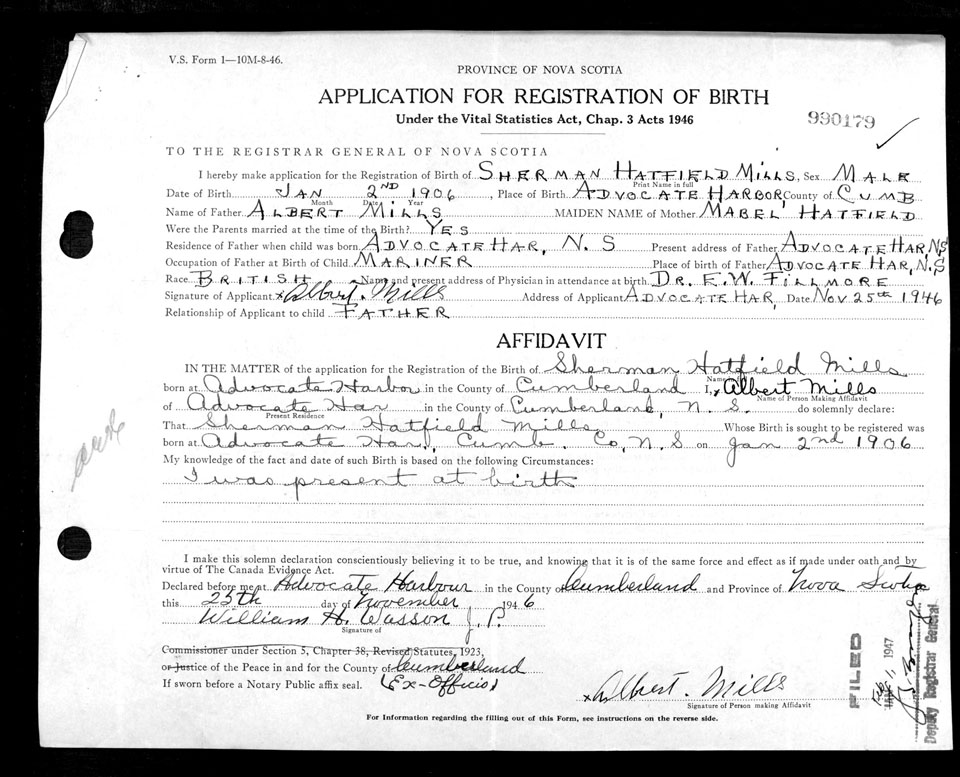 V.S. Form 1—10M-8-46.
PROVINCE OF NOVA SCOTIA
APPLICATION FOR REGISTRATION OF BIRTH
Under the Vital Statistics Act, Chap. 3 Acts 1946
990179
TO THE REGISTRAR GENERAL OF NOVA SCOTIA
I hereby make application for the Registration of Birth of SHERMAN HATFIELD MILLS, Sex MALE
Print Name in full
Date of Birth JAN 2ND 1906, Place of Birth ADVOCATE HARBOR County of CUMB
Month Date Year
Name of Father ALBERT MILLS MAIDEN NAME of Mother MABEL HATFIELD
Were the Parents married at the time of the Birth? YES
Residence of Father when child was born ADVOCATE HAR, N. S Present address of Father ADVOCATE HAR, N.S
Occupation of Father at Birth of Child MARINER Place of birth of Father ADVOCATE HAR, N.S
Race BRITISH Name and present address of Physician in attendance at birth DR. E.W. FILLMORE
Signature of Applicant x Albert. Mills Address of Applicant ADVOCATE HAR, Date NOV 25th 1946
Relationship of Applicant to child FATHER
AFFIDAVIT
IN THE MATTER of the application for the Registration of the Birth of Sherman Hatfield Mills
born at Advocate Harbor in the County of Cumberland I, x Albert Mills
Name of Person Making Affidavit
of Advocate Har in the County of Cumberland, N. S. do solemnly declare:
Present Residence
That Sherman Hatfield Mills Whose Birth is sought to be registered was
born at Advocate Har, Cumb. Co, N. S on Jan 2nd 1906
My knowledge of the fact and date of such Birth is based on the following Circumstances:
I was present at birth
I make this solemn declaration conscientiously believing it to be true, and knowing that it is of the same force and effect as if made under oath and by
virtue of The Canada Evidence Act.
Declared before me at Advocate Harbour in the County of Cumberland and Province of Nova Scotia
this 25th day of November 1946
William H. Wasson J. P.
Signature of
Commissioner under Section 5, Chapter 38, Revised Statutes, 1923,
or Justice of the Peace in and for the County of Cumberland
If sworn before a Notary Public affix seal. (Ex-Officio)
x Albert. Mills
Signature of Person making Affidavit
For Information regarding the filling out of this Form, see instructions on the reverse side.
FILED
1, 1947
Deputy Registrar General